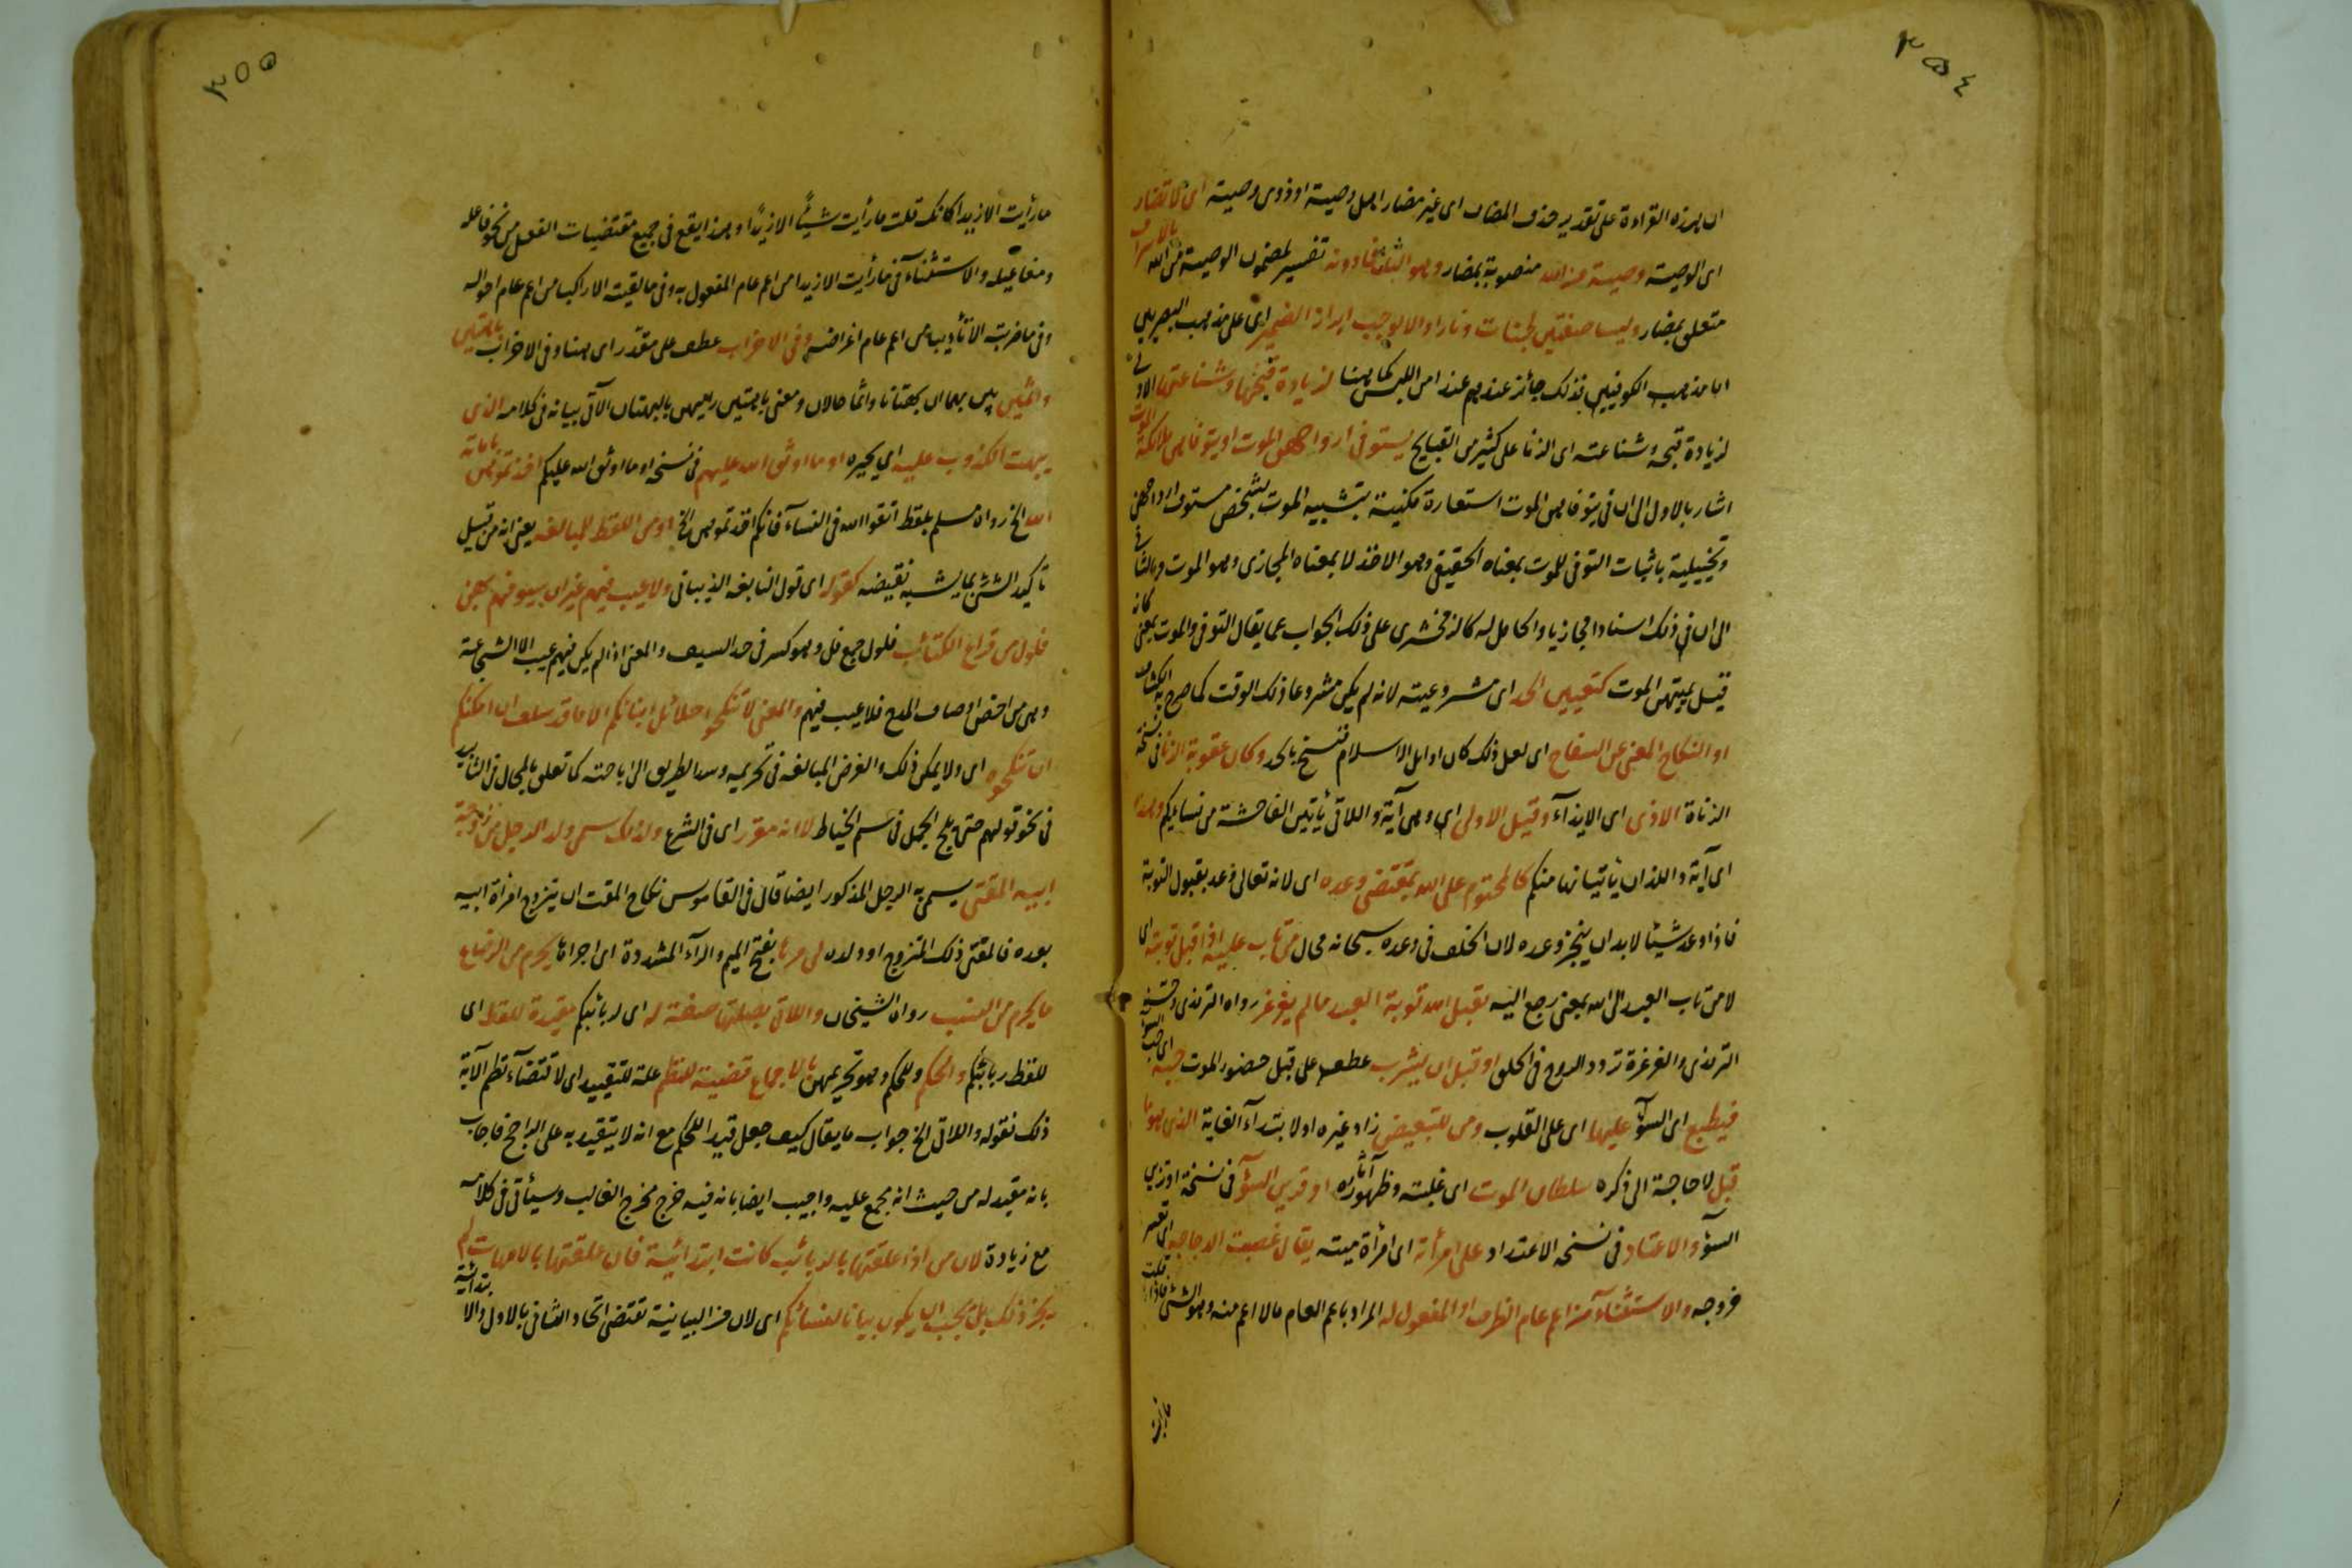 ٣٥٤
ان هذه القراءة على تقدير حذف المضاف اى غير مضار اهل وصية او ذوى وصية اى لا تضار بالاسراف
اى الوصية وصية من الله منصوبة بمضار وهو الثانى فا دونه تفسير لمضمون الوصية من الله
متعلق بمضار وليسا صفتين لجنات ونارا والا لوجب ابراز الضمير اى على مذهب البصريين
اما مذهب الكوفيين فذلك جائز عندهم عند امن اللبس كما هنا لزيادة قبحها وشناعتها الاولى
لزيادة قبحه وشناعته اى الزنا على كثير من القبايح يستوفى ارواحهن الموت او يتوفاهن ملائكة الموت
اشار بالاول الى ان فى يتوفاهن الموت استعارة مكنية بتشبيه الموت بشخص مستوف ارواحهن
وتخييلية باثبات التوفى للموت بمعناه الحقيقى وهو الاخذ لا بمعناه المجازى وهو الموت وبالثانى
الى ان فى ذلك اسنادا مجازيا والحامل له كالزمخشرى على ذلك الجواب عما يقال التوفى والموت بمعنى كانه
قيل يميتهن الموت كتعيين الحد اى مشروعيته لانه لم يكن مشروعا ذلك الوقت كما صرح به الكشاف
او النكاح المغنى عن السفاح اى لعل ذلك كان اوايل الاسلام فنسخ بالحد وكان عقوبة الزنا فى نسخة
الزناة الاذى اى الايذآء وقيل الاولى اى وهى آية واللاتى يأتين الفاحشة من نسايكم وهذا
اى آية واللذان يأتيانها منكم كالمحتوم على الله بمقتضى وعده اى لانه تعالى وعد بقبول التوبة
فاذا وعد شيئا لابد ان ينجز وعده لان الخلف فى وعده سبحانه محال من تاب عليه اذا قبل توبته اى
لا من تاب العبد الى الله بمعنى رجع اليه يقبل الله توبة العبد ما لم يغرغر رواه الترمذى وحسنه
الترمذى والغرغرة تردد الروح فى الحلق او قبل ان يشرب عطف على قبل حضور الموت حبه اى حب السوء
فيطبع اى السوٓء عليها اى على القلوب ومن للتبعيض زاد غيره او لابتدآء الغاية الذى هو ما
قبل لا حاجة الى ذكره سلطان الموت اى غلبته وظهور آثاره او قرين السوٓء فى نسخة او تزيين
السوٓء والاعتاد فى نسخه الاعتداد على امرأته اى امرأة ميته يقال عضلت الدجاجه اى تعسر
خروجه والاستثنآء من اعم عام الظرف او المفعول له المراد باعم العام ما لا اعم منه وهو الشئ فاذا قلت
ما رأيت
٣٥٥
ما رأيت الا زيدا كانك قلت ما رأيت شيئًا الا زيدًا وهذا يقع فى جميع مقتضيات الفعل من نحو فاعله
ومفاعيله والاستثنآء فى ما رأيت الا زيدا من اعم عام المفعول به وفى ما لقيت الا راكبا من اعم عام احواله
وفى ما ضربته الا تأديبا من اعم عام اغراضه وفى الاخراب عطف على مقدر اى هنا وفى الاخراب باهتين
واثمين بين بهما ان بهتانا واثما حالان ومعنى باهتين راميين بالبهتان الآتى بيانه فى كلامه الذى
يبهت المكذوب عليه اى يحيره او ما اوثق الله عليهم فى نسخه او ما اوثق الله عليكم اخذتموهن بامانة
الله الخ رواه مسلم بلفظ اتقوا الله فى النسآء فانكم اخذتموهن الخ او من اللفظ للمبالغه يعنى انه من قبيل
تاكيد الشئ بما يشبه نقيضه كقوله اى قول النابغه الذبيانى ولا عيب فيهم غير ان سيوفهم بهن
فلول من قراع الكتائب فلول جمع فل وهو كسر فى حد السيف والمعنى اذا لم يكن فيهم عيب الا الشجاعة
وهى من اخص اوصاف المدح فلا عيب فيهم والمعنى لا تنكحوا حلائل ابنائكم الا ما قد سلف ان امكنكم
ان تنكحوه اى ولا يمكن ذلك والغرض المبالغه فى تحريمه وسد الطريق الى اباحته كما تعلق بالمحال فى التابيد
فى نحو قولهم حتى يلج الجمل فى سم الخياط لانه مقرر اى فى الشرع ولذلك سمى ولد الرجل من زوجة
ابيه المقتى يسمى به الرجل المذكور ايضا قال فى القاموس نكاح المقت ان يتزوج امرأة ابيه
بعده فالمقتى ذلك المتزوج او ولده لى مرها بفتح الميم والرآء المشددة اى اجراها يحرم من الرضاع
ما يحرم من النسب رواه الشيخان واللاتى بصلتها صفة له اى لربائبكم مقيدة للفظ اى
للفظ ربائبكم والحكم وللحكم وهو تحريمهن بالاجماع قضية للنظم علة للتقييد اى لاقتضآء نظم الآية
ذلك فقوله واللاتى الخ جواب ما يقال كيف جعل قيد الحكم مع انه لا يتقيد به على الراجح فاجاب
بانه مقيد له من حيث انه مجمع عليه واجيب ايضا بانه فيه خرج مخرج الغالب وسيأتى فى كلامه
مع زيادة لان من اذا علقتها بالربائب كانت ابتدائية فان علقتها بالامهات لم
يجز ذلك بل يجب ان يكون بيانا لنسائكم اى لان من البيانية تقتضى اتحاد الثانى بالاول والابتدائية